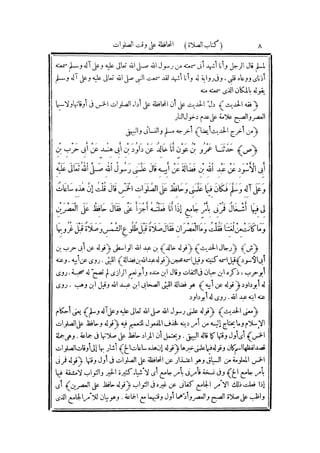 ٨ (كتاب الصلاة) المحافظة على وقت الصلوات
لمسلم قال الرجل وأنا أشهد أنى سمعته من رسول الله صلى الله تعالى عليه وعلى آله وسلم سمعته
أذناى ووعاه قلبى. وفى رواية له وأنا أشهد لقد سمعت النبى صلى الله تعالى عليه وعلى آله وسلم
يقوله بالمكان الذى سمعته منه
(فقه الحديث) دل الحديث على أن المحافظة على أداء الصلوات الخمس فى أوقاتها ولاسيما
العصر والصبح علامة على عدم دخول النار
(من أخرج الحديث أيضا) أخرجه مسلم والنسائى والبيهقى
(ص) حَدَّثَنَا عَمْرُو بْنُ عَوْنٍ أَنَا خَالِدٌ عَنْ دَاوُدَ بْنِ أَبِى هِنْدٍ عَنْ أَبِى حَرْبِ بْنِ
أَبِى الْأَسْوَدِ عَنْ عَبْدِ اللهِ بْنِ فَضَالَةَ عَنْ أَبِيهِ قَالَ عَلَّمَنِى رَسُولُ اللهِ صَلَّى اللهُ تَعَالَى عَلَيْهِ
وَعَلَى آلِهِ وَسَلَّمَ فَكَانَ فِيمَا عَلَّمَنِى وَحَافِظْ عَلَى الصَّلَوَاتِ الْخَمْسِ قَالَ قُلْتُ إِنَّ هٰذِهِ سَاعَاتٌ
لِى فِيهَا أَشْغَالٌ فَمُرْنِى بِأَمْرٍ جَامِعٍ إِذَا أَنَا فَعَلْتُهُ أَجْزَأَ عَنِّى فَقَالَ حَافِظْ عَلَى الْعَصْرَيْنِ
وَمَا كَانَتْ مِنْ لُغَتِنَا فَقُلْتُ وَمَا الْعَصْرَانِ فَقَالَ صَلَاةٌ قَبْلَ طُلُوعِ الشَّمْسِ وَصَلَاةٌ قَبْلَ غُرُوبِهَا
(ش) (رجال الحديث) (قوله خالد) بن عبد الله الواسطى (قوله عن أبى حرب بن
أبى الأسود) قيل اسمه كنيته وقيل اسمه محجن (قوله عبد الله بن فضالة) الليثى. روى عن أبيه. وعنه
أبو حرب. ذكره ابن حبان فى الثقات وقال ابن منده وأبو نعيم الرازى لم تصح له صحبة. روى
له أبو داود (قوله عن أبيه) هو فضالة الليثى الصحابى ابن عبد الله وقيل ابن وهب. روى
عنه ابنه عبد الله. روى له أبو داود
(معنى الحديث) (قوله علمنى رسول الله صلى الله تعالى عليه وعلى آله وسلم) يعنى أحكام
الإسلام وما يحتاج إليه من أمر دينه فحذف المفعول للتعميم فيه (قوله وحافظ على الصلوات
الخمس) أى أول وقتها كما قاله البيهقى. ويحتمل أن المراد حافظ على صلاتها فى جماعة.
الخمس المعلومة من السياق وهو اعتذار عن المحافظة على الصلوات فى أول وقتها (قوله فمرنى
بأمر جامع الخ) وفى نسخة فأمرنى بأمر جامع أى لأشياء كثيرة الخير والثواب لا مشقة فيها
إذا فعلت ذلك الأمر الجامع كفانى عن غيره فى الثواب (قوله حافظ على العصرين) أى
واظب على صلاة الصبح والعصر وأدهما أول وقتهما مع الجماعة. وهو بيان للأمر الجامع الذى